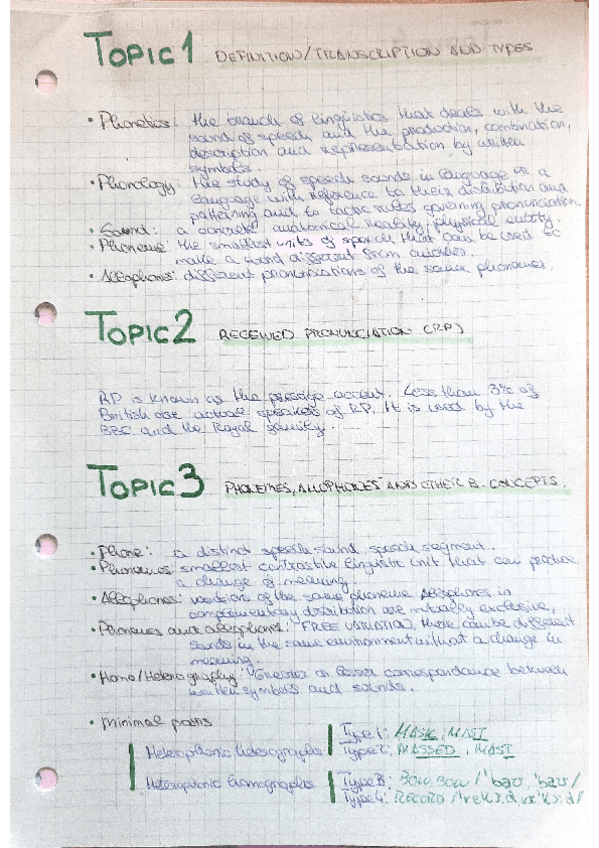 TOPIC 1 DEFINITION/TRANSCRIPTION AND TYPES
• Phonetics: the branch of linguistics that deals with the
sound of speech and the production, combination,
description and representation by written
symbols.
• Phonology: the study of speech sounds in language or a
language with reference to their distribution and
patterning and to tactic rules governing pronunciation.
• Sound: a concrete anatomical reality, physical entity.
• Phoneme: the smallest units of speech that can be used to
make a word different from another.
• Allophones: different pronunciations of the same phonemes.
TOPIC 2 RECEIVED PRONUNCIATION (RP)
RP is known as the prestige accent. Less than 3% of
British are actual speakers of RP. It is used by the
BBC and the Royal family.
TOPIC 3 PHONEMES, ALLOPHONES AND OTHER B. CONCEPTS.
• Phone: a distinct speech sound, speech segment.
• Phonemes: smallest contrastive linguistic unit that can produce
a change of meaning.
• Allophones: variation of the same phoneme. Allophones in
complementary distribution are mutually exclusive,
• Phonemes and allophones: "FREE VARIATION, there can be different
sounds in the same environment without a change in
meaning.
• Homo/Heterography: Greater or lesser correspondance between
written symbols and sounds.
• Minimal pairs
Heterophonic heterographs
Type 1: MASK, MAST
Type 2: MASSED, MAST
Heterophonic homographs
Type 3: BOW, BOW /'bəʊ, 'baʊ/
Type 4: RECORD